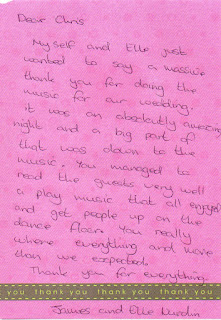 Dear Chris
Myself and Elle just
wanted to say a massive
thank you for doing the
music for our wedding.
it was an absolutely amazing
night and a big part of
that was down to the
music. You managed to
read the guests very well
a play music that all enjoyed
and get people up on the
dance floor. You really
where everything and more
than we expected.
Thank you for everything.
you thank you thank you thank you
James and Elle